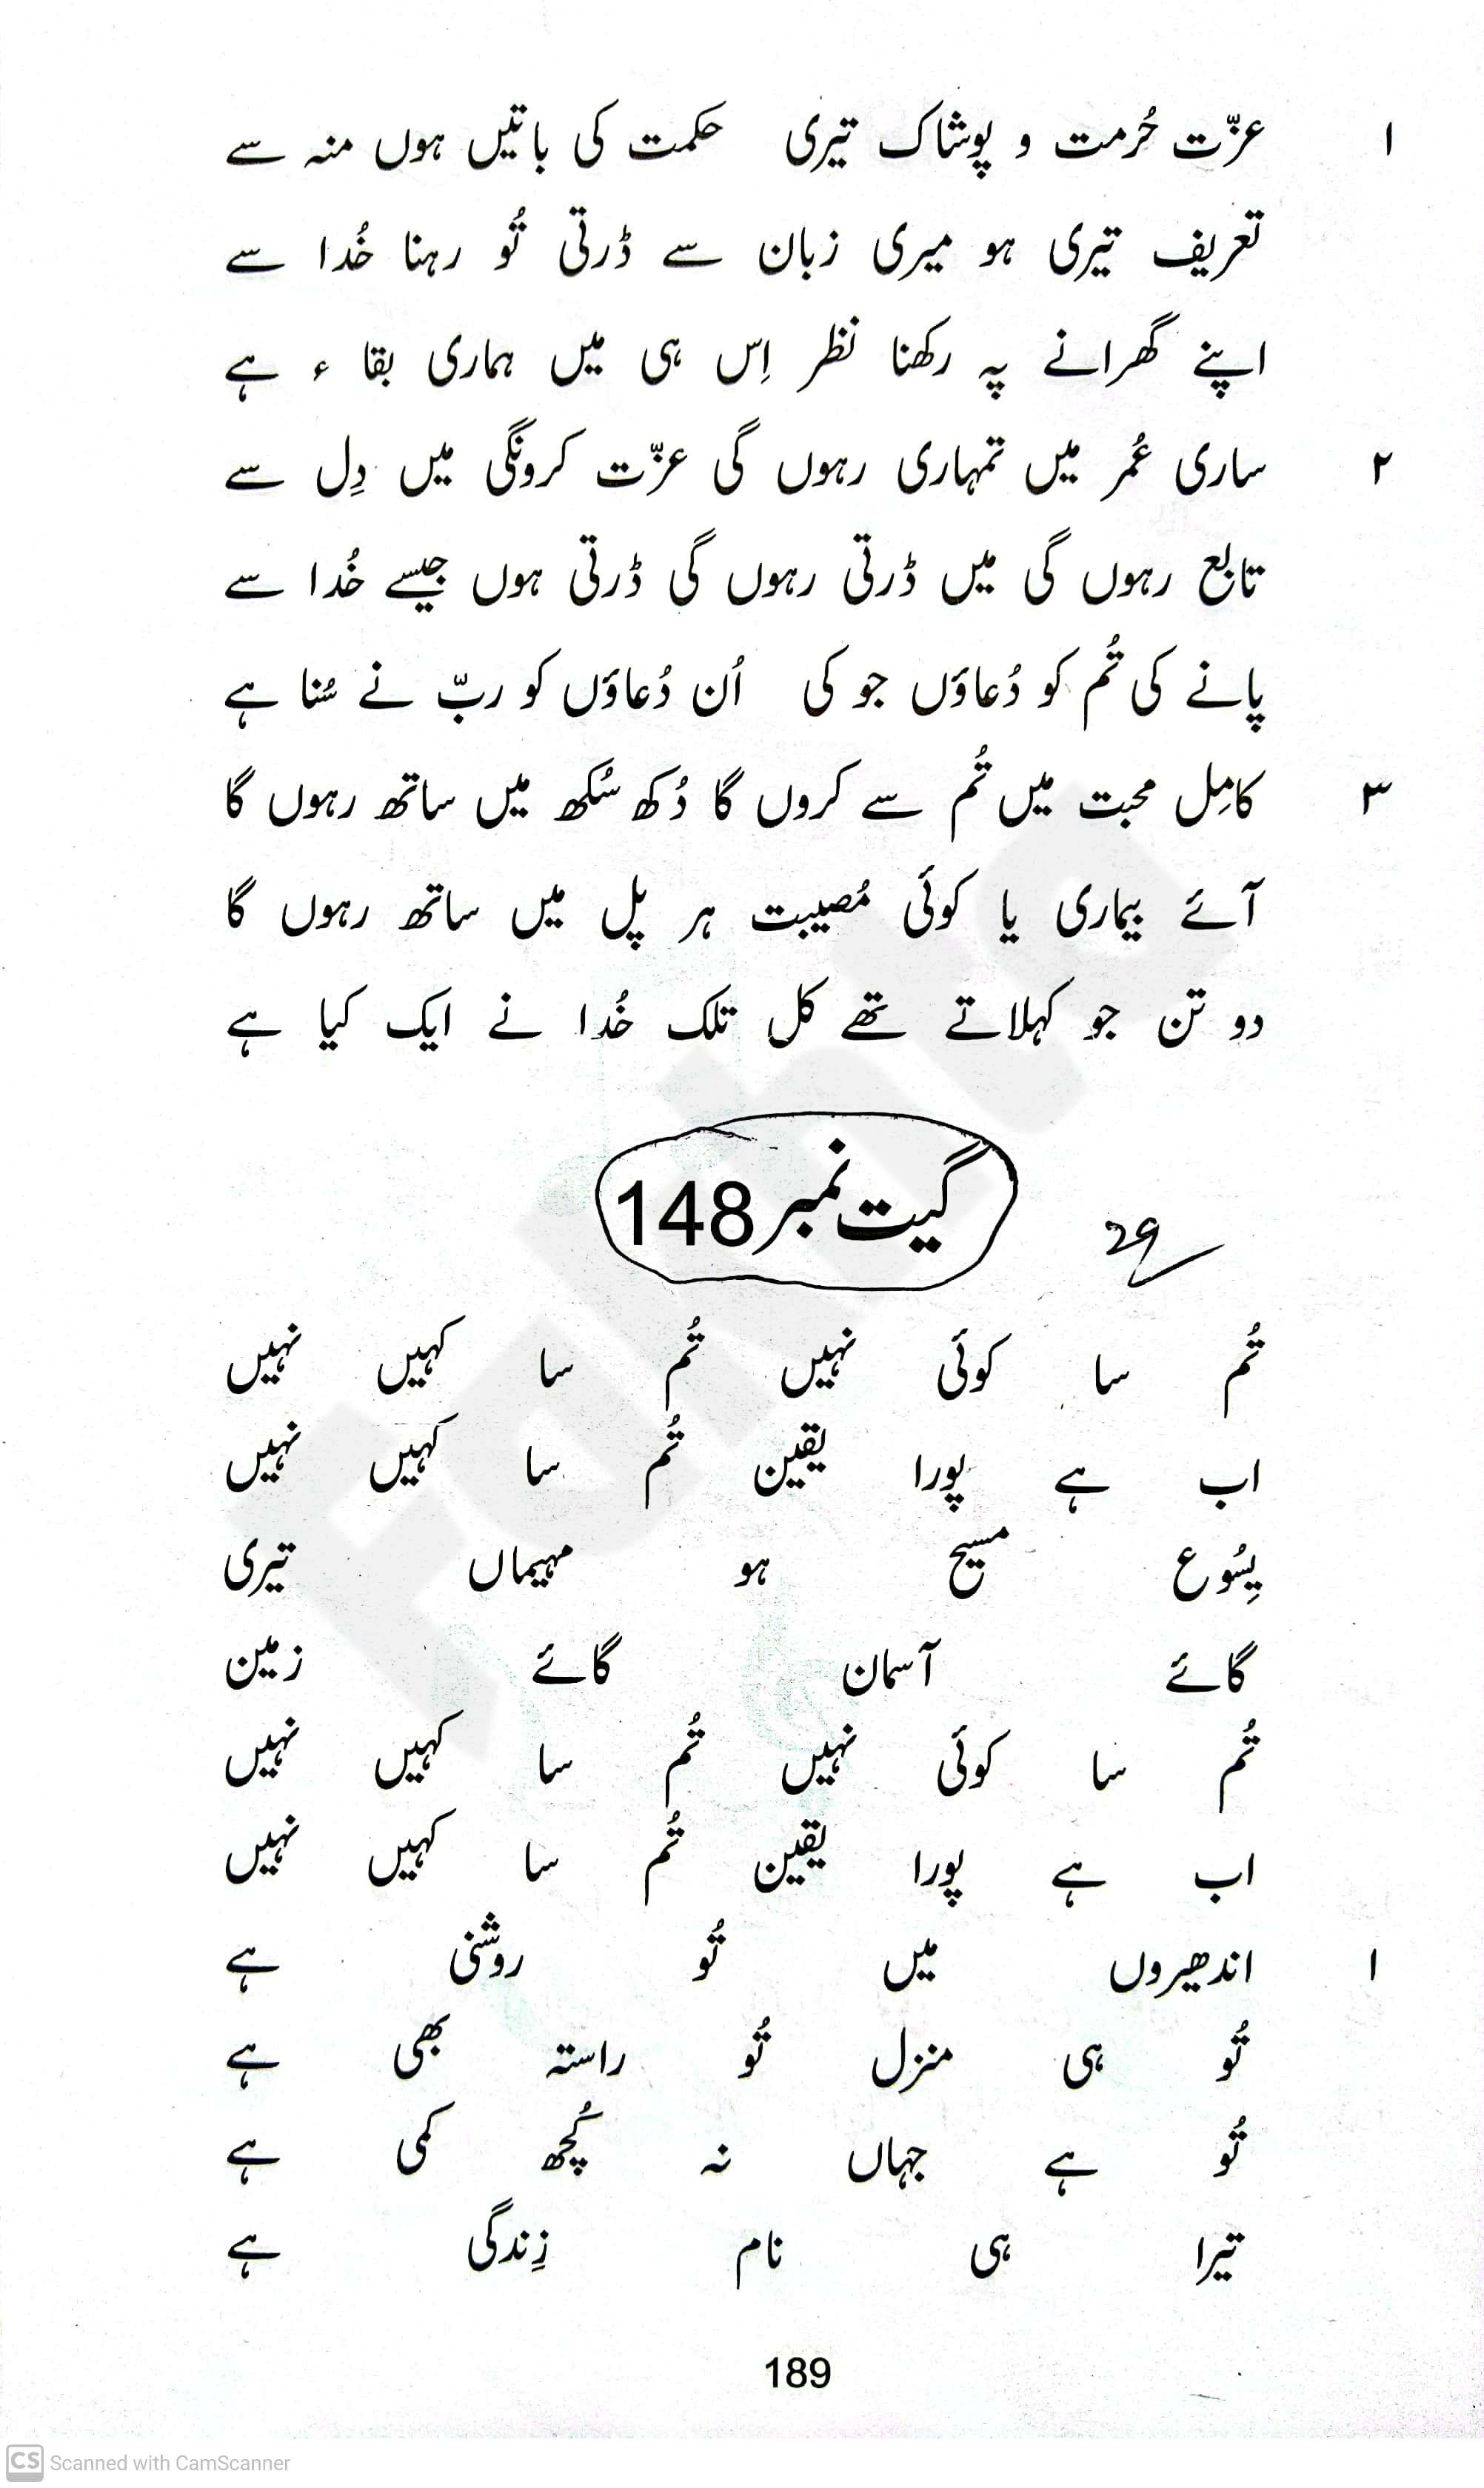 ۱ عزّت حُرمت و پوشاک تیری حکمت کی باتیں ہوں منہ سے
تعریف تیری ہو میری زبان سے ڈرتی تُو رہنا خُدا سے
اپنے گھرانے پہ رکھنا نظر اِس ہی میں ہماری بقا ء ہے
۲ ساری عُمر میں تمہاری رہوں گی عزّت کرونگی میں دِل سے
تابع رہوں گی میں ڈرتی رہوں گی ڈرتی ہوں جیسے خُدا سے
پانے کی تُم کو دُعاؤں جو کی اُن دُعاؤں کو ربّ نے سُنا ہے
۳ کامِل محبت میں تُم سے کروں گا دُکھ سُکھ میں ساتھ رہوں گا
آئے بیماری یا کوئی مُصیبت ہر پل میں ساتھ رہوں گا
دو تن جو کہلاتے تھے کل تلک خُدا نے ایک کیا ہے
گیت نمبر 148
29
تُم سا کوئی نہیں تُم سا کہیں نہیں
اب ہے پورا یقین تُم سا کہیں نہیں
یِسُوع مسیح ہو مہیماں تیری
گائے آسمان گائے زمین
تُم سا کوئی نہیں تُم سا کہیں نہیں
اب ہے پورا یقین تُم سا کہیں نہیں
۱ اندھیروں میں تُو روشنی ہے
تُو ہی منزل تُو راستہ بھی ہے
تُو ہے جہاں نہ کُچھ کمی ہے
تیرا ہی نام زِندگی ہے
189
CS Scanned with CamScanner